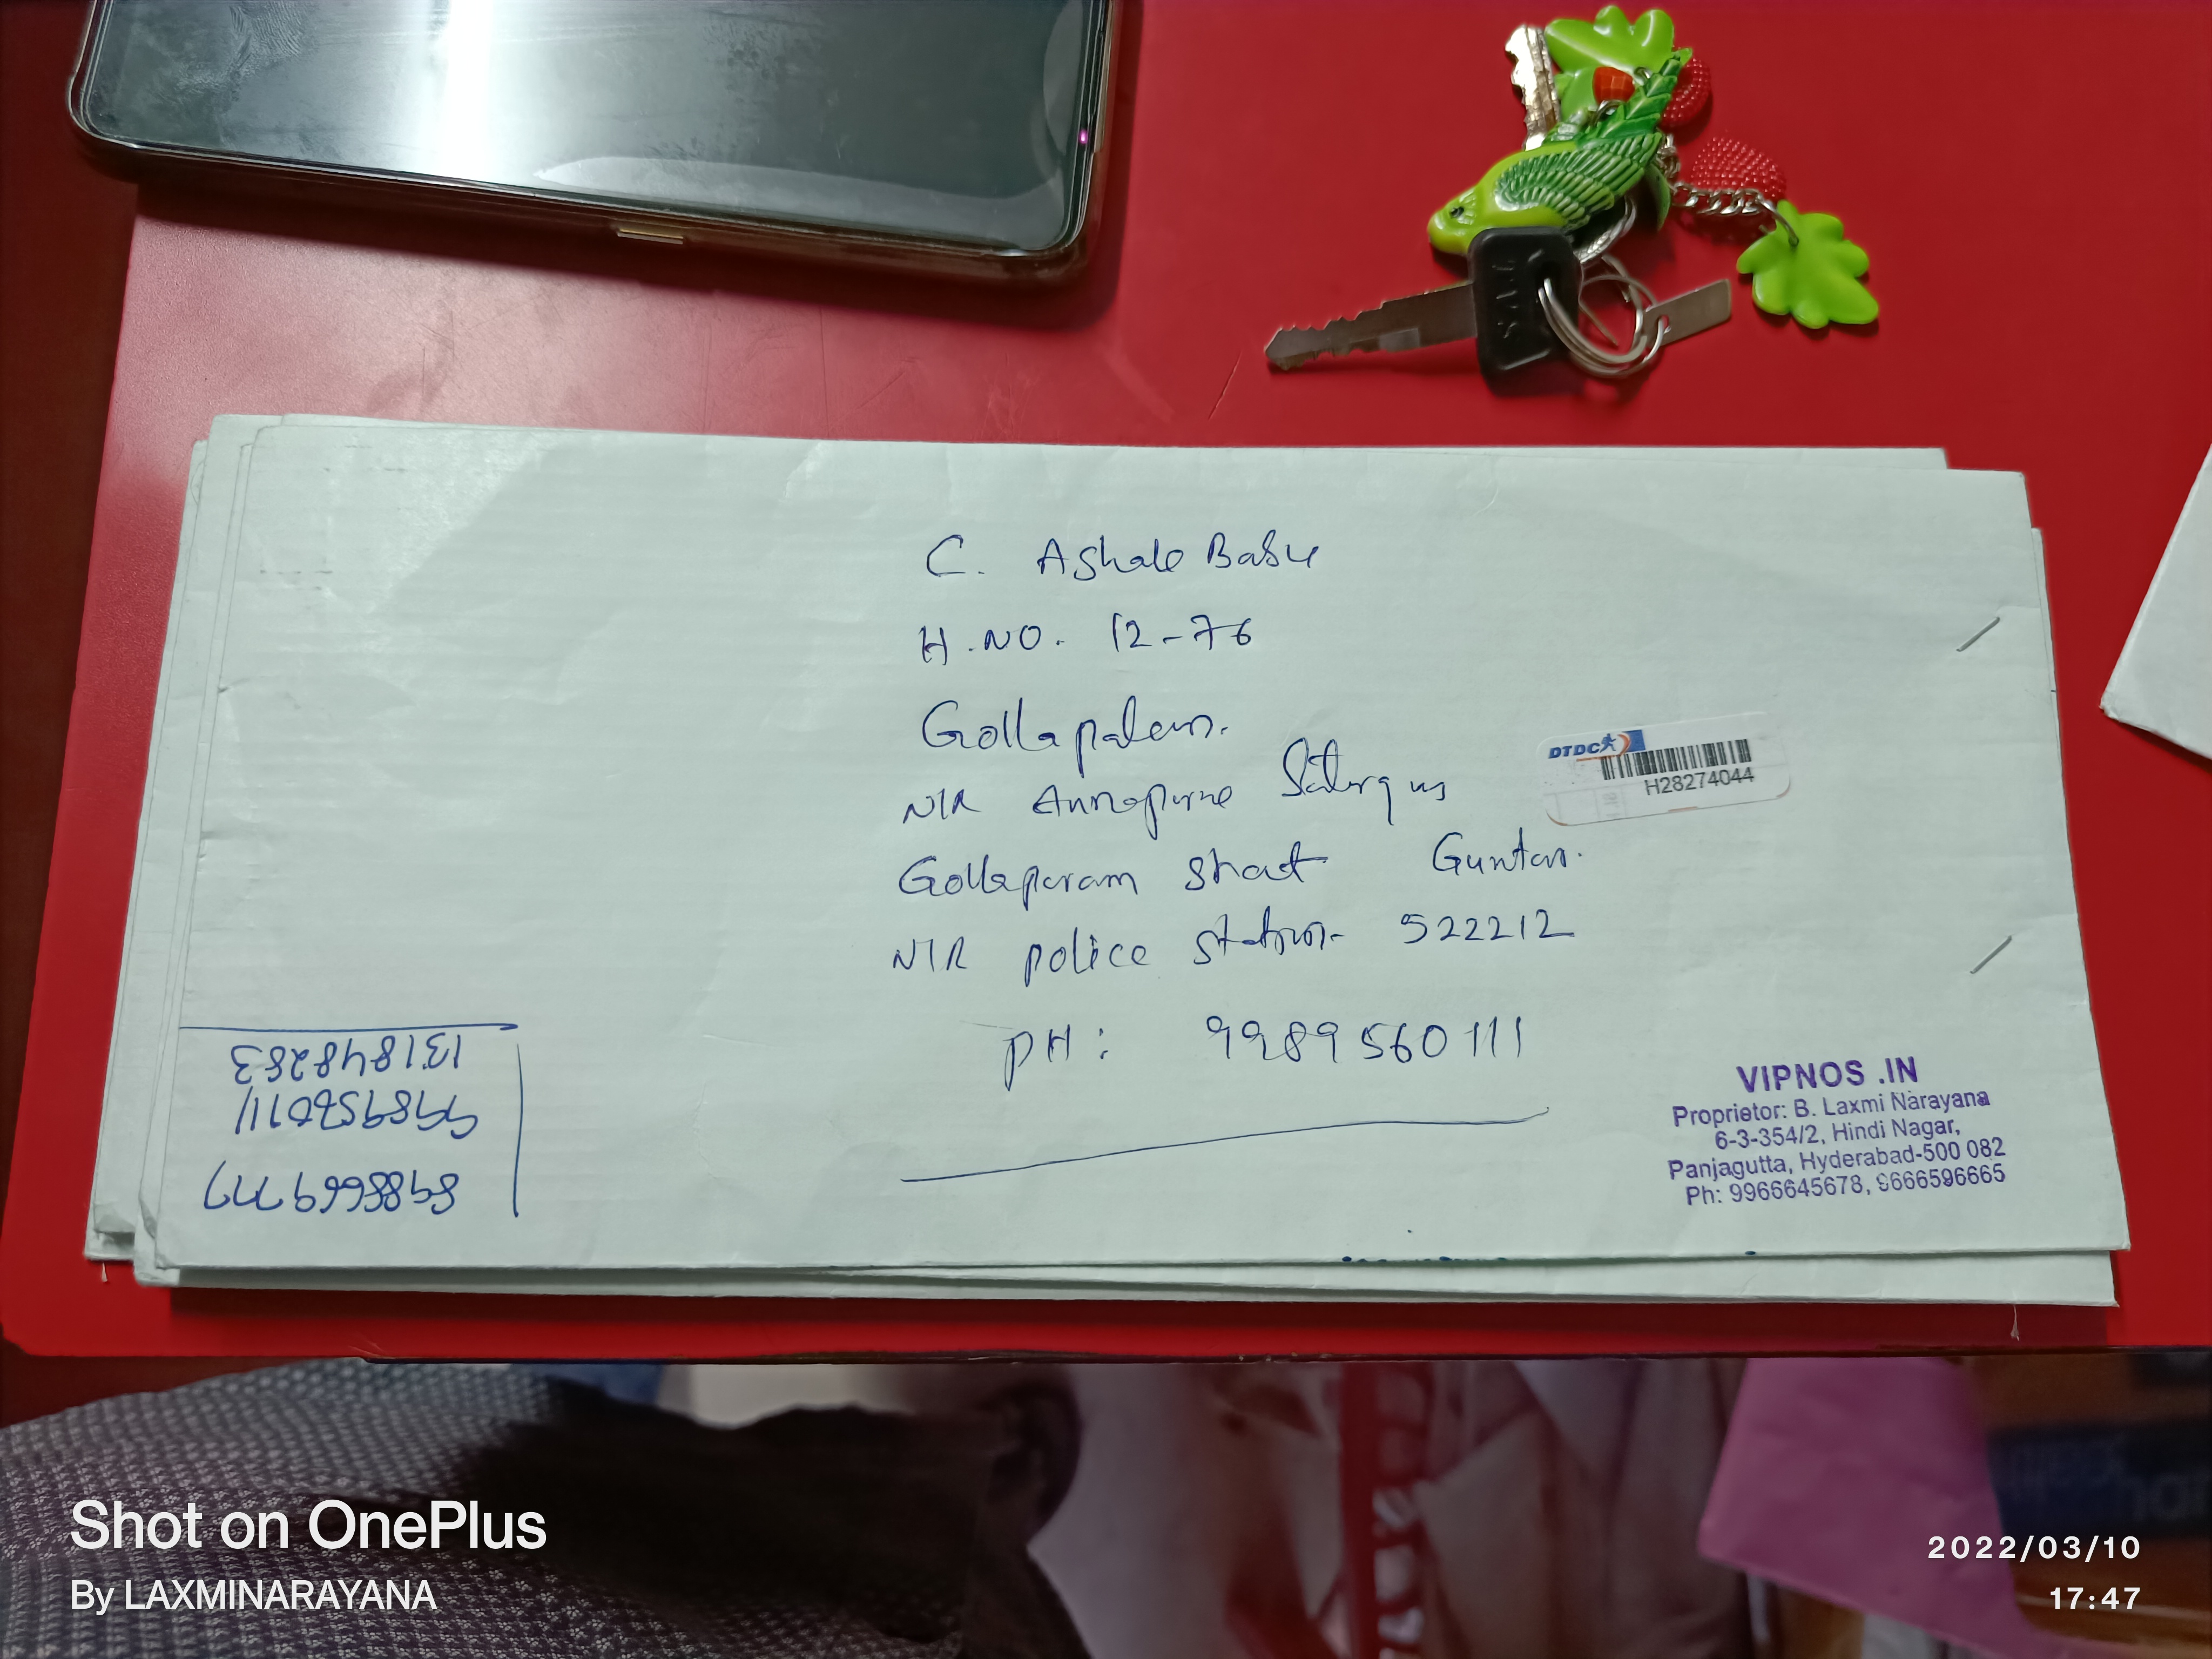 C. Ashok Babu
H.NO. 12-76
Gollapalem.
N/R Annapurna
Gollaparam street Guntur.
N/R police station 522212
PH: 9989560111
DTDC
H28274044
VIPNOS .IN
Proprietor: B. Laxmi Narayana
6-3-354/2, Hindi Nagar,
Panjagutta, Hyderabad-500 082
Ph: 9966645678, 9666596665
8988669777
9989560111
131848283
Shot on OnePlus
By LAXMINARAYANA
2022/03/10
17:47